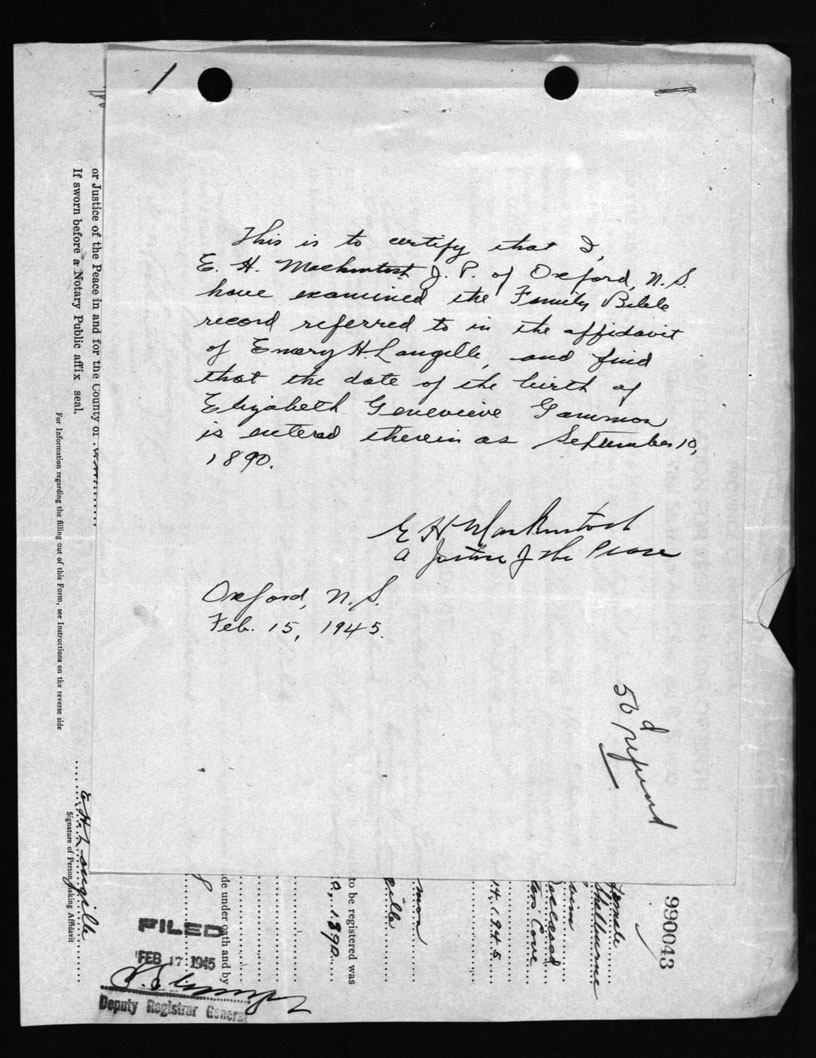 1
This is to certify that I,
E. H. Mackintosh J. P. of Oxford, N.S.
have examined the Family Bible
record referred to in the affidavit
of Emery H Langille, and find
that the date of the birth of
Elizabeth Genevieve Gammon
is entered therein as September 10,
1890.
E H Mackintosh
a Justice of the Peace
Oxford, N.S.
Feb. 15, 1945.
refund
or Justice of the Peace in and for the County of
If sworn before a Notary Public affix seal.
For Information regarding the filling out of this Form, see Instructions on the reverse side
E. H. Langille
Signature of Person making Affidavit
990043
female
Shelburne
Deceased
Cove
14.1945.
mon
ville
to be registered was
0, 1890.
de under oath and by
FILED
FEB 17 1945
Deputy Registrar General